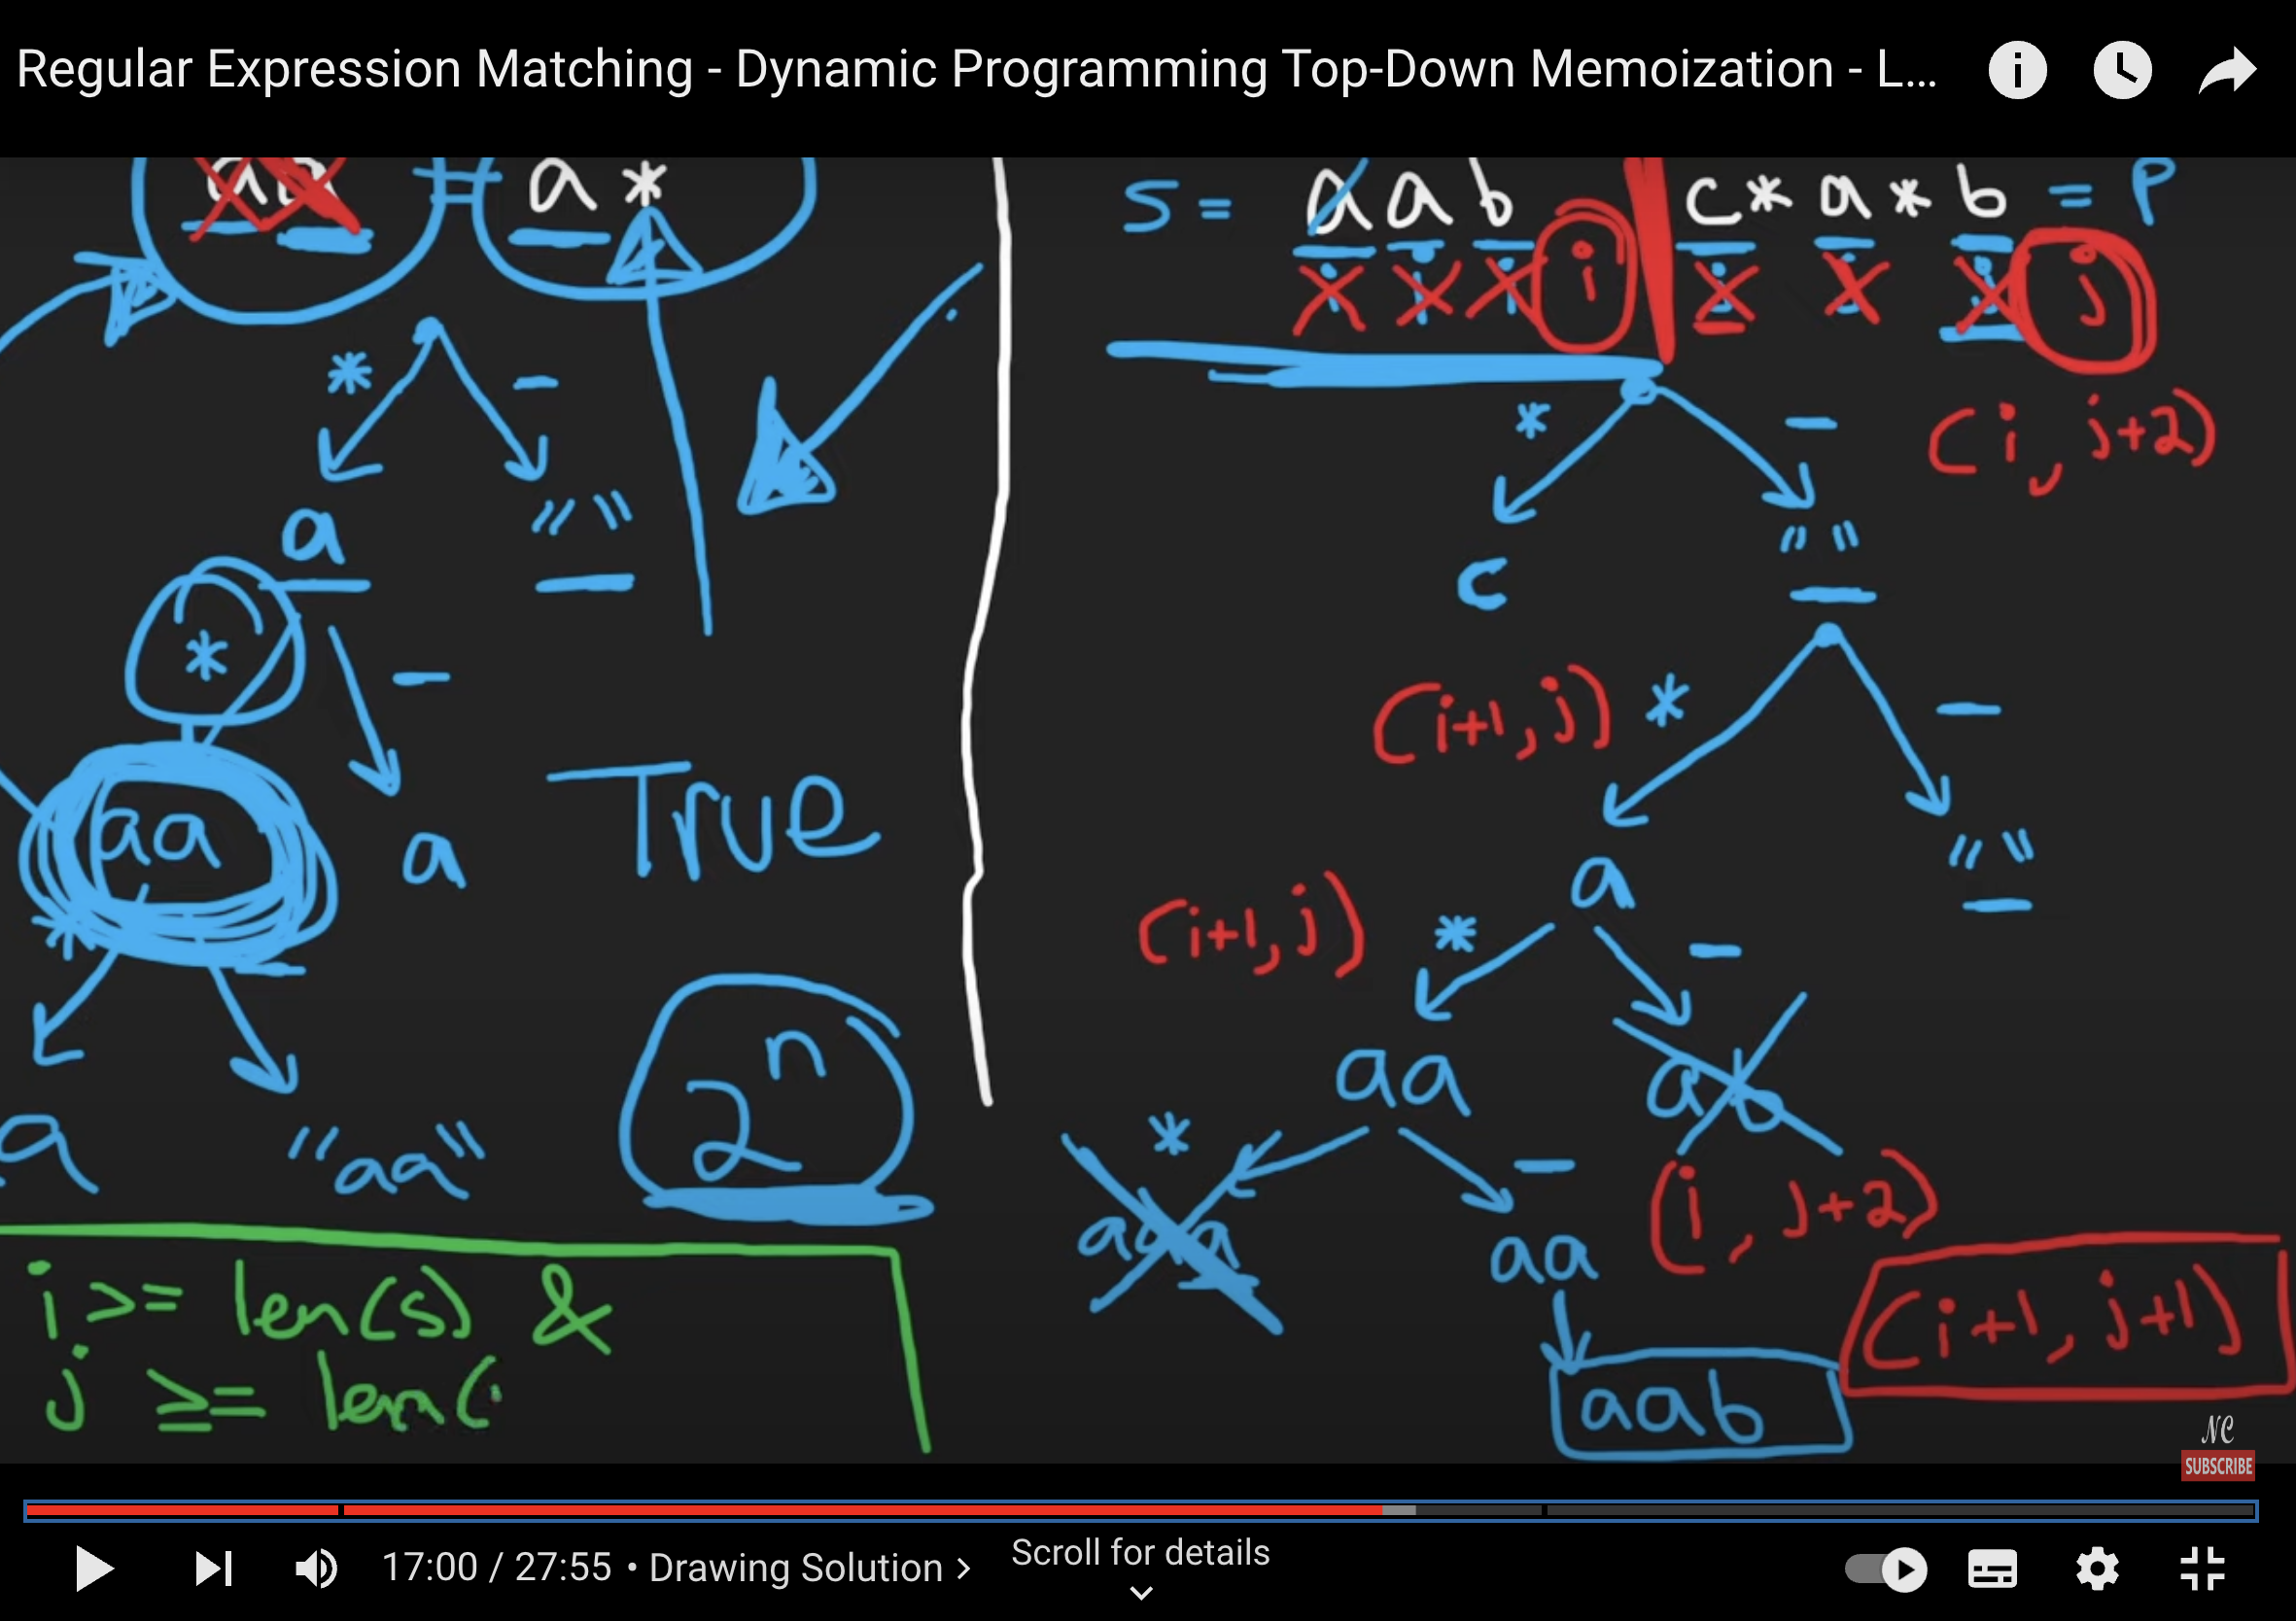 Regular Expression Matching - Dynamic Programming Top-Down Memoization - L...
a *
* -
a " "
* -
aa a
True
*
a "aa"
2^n
i >= len(s) &
j >= len(
S = a a b c * a * b = P
i j
* - (i, j+2)
c " "
(i+1, j) * -
a " "
(i+1, j) * -
aa ab
* - (i, j+2)
aaa aa
(i+1, j+1)
aab
NC
SUBSCRIBE
17:00 / 27:55 • Drawing Solution >
Scroll for details